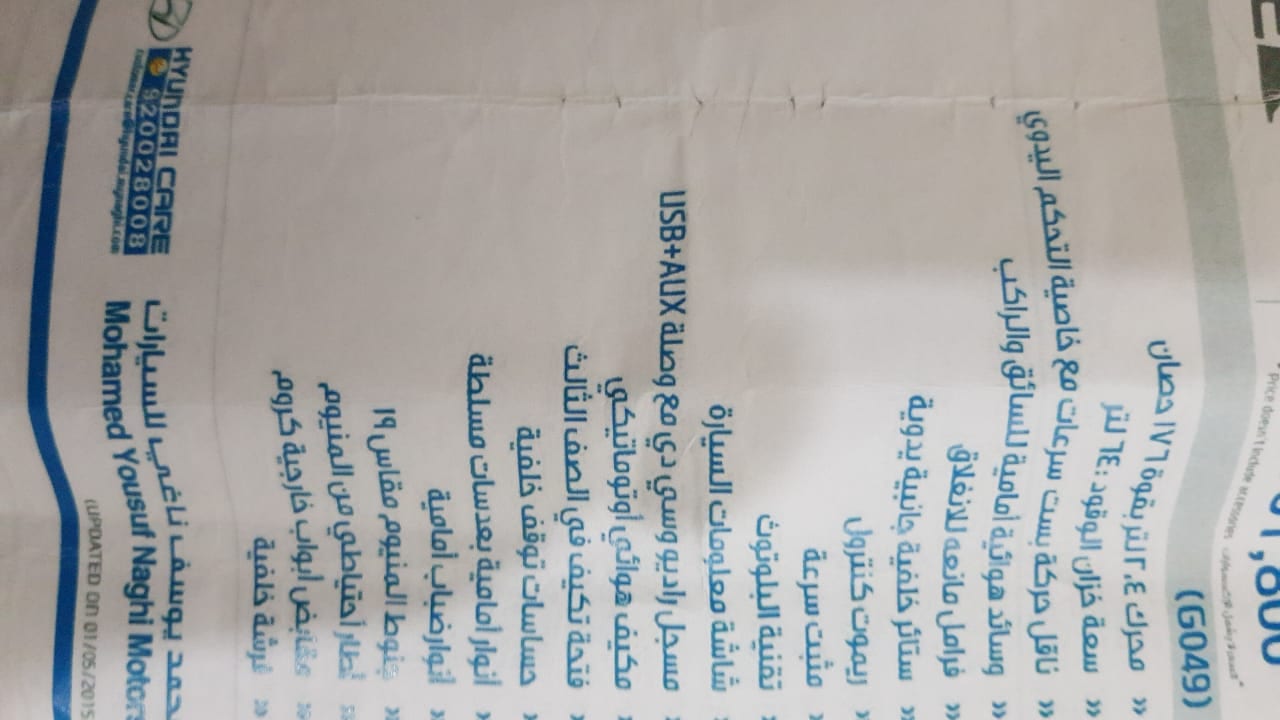 *Price doesn't include accessories
(G049)
« محرك ٢.٤ لتر بقوة ١٧٦ حصان
« سعة خزان الوقود: ٦٤ لتر
« ناقل حركة بست سرعات مع خاصية التحكم اليدوي
« وسائد هوائية أمامية للسائق والراكب
« فرامل مانعه للانغلاق
« ستائر خلفية جانبية يدوية
« ريموت كنترول
« مثبت سرعة
« تقنية البلوتوث
« شاشة معلومات السيارة
« مسجل راديو وسي دي مع وصلة USB+AUX
« مكيف هوائي أوتوماتيكي
« فتحة تكييف في الصف الثالث
« حساسات توقف خلفية
« أنوار أمامية بعدسات مسلطة
« أنوار ضباب أمامية
« جنوط المنيوم مقاس ١٩
« إطار أحتياطي من المنيوم
« مقبض ابواب خارجية كروم
« فرشة خلفية
HYUNDAI CARE
920028008
محمد يوسف ناغي للسيارات
Mohamed Yousuf Naghi Motors
(UPDATED ON 01/05/2015